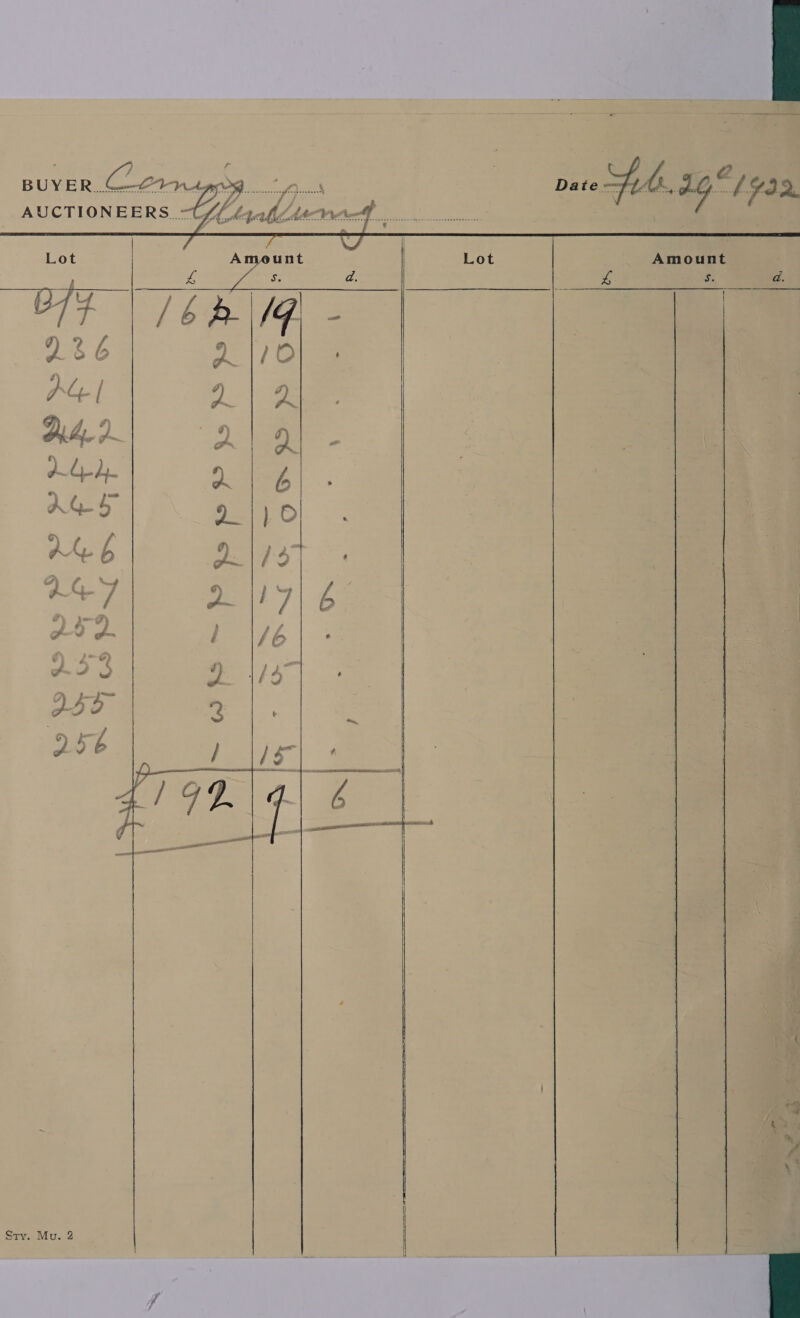 BUYER
Date Feb. 29th 1932
AUCTIONEERS Glendining
Lot Amount Lot Amount
£ s. d. £ s. d.
B/f 165 19 -
236 2 10 .
241 2 2 .
242 2 2 -
244 2 6 .
245 2 10 .
246 2 15 .
247 2 17 6
252 1 16 .
253 2 15 .
255 3 . -
256 1 15 .
£192 7 6
STY. MU. 2